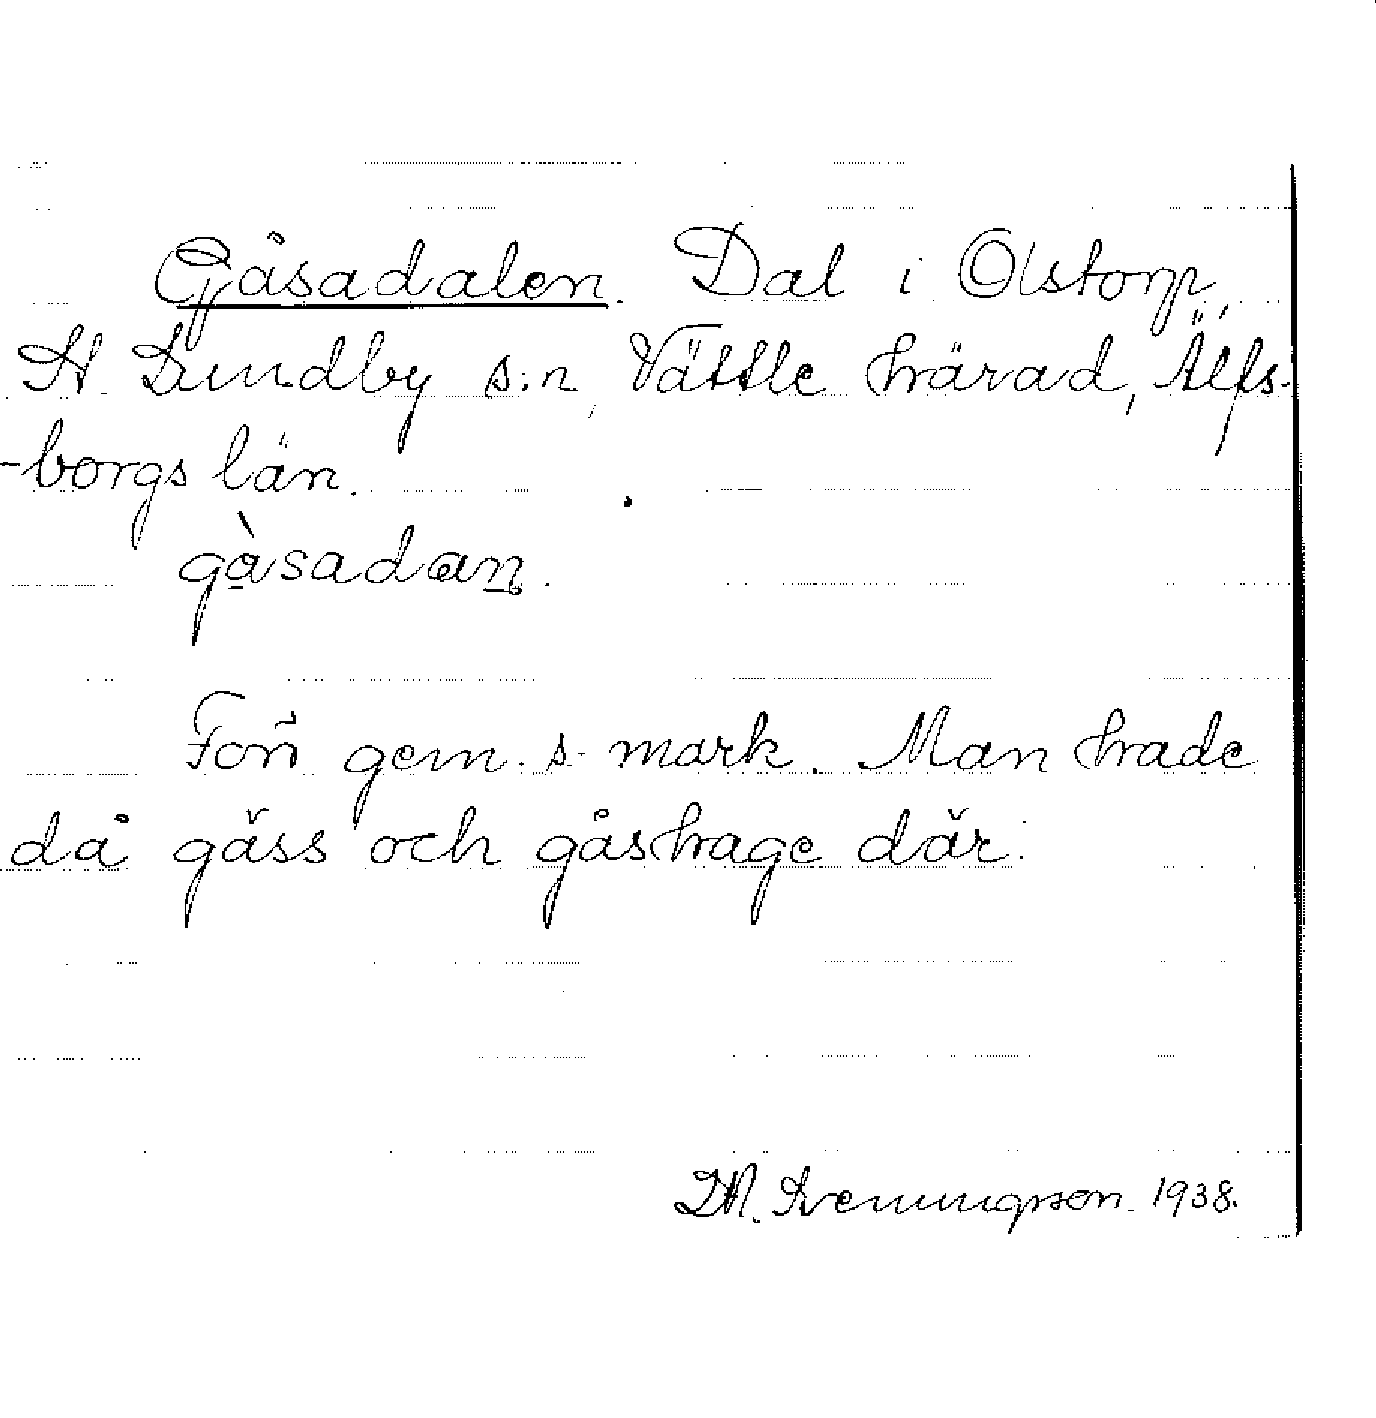 Gåsadalen. Dal i Olstorp,
St Lundby s:n, Vättle härad, Älfs-
-borgs län.
gàsadan.
Forr gem. s. mark. Man hade
då gäss och gåshage där.
Svenungsson. 1938.